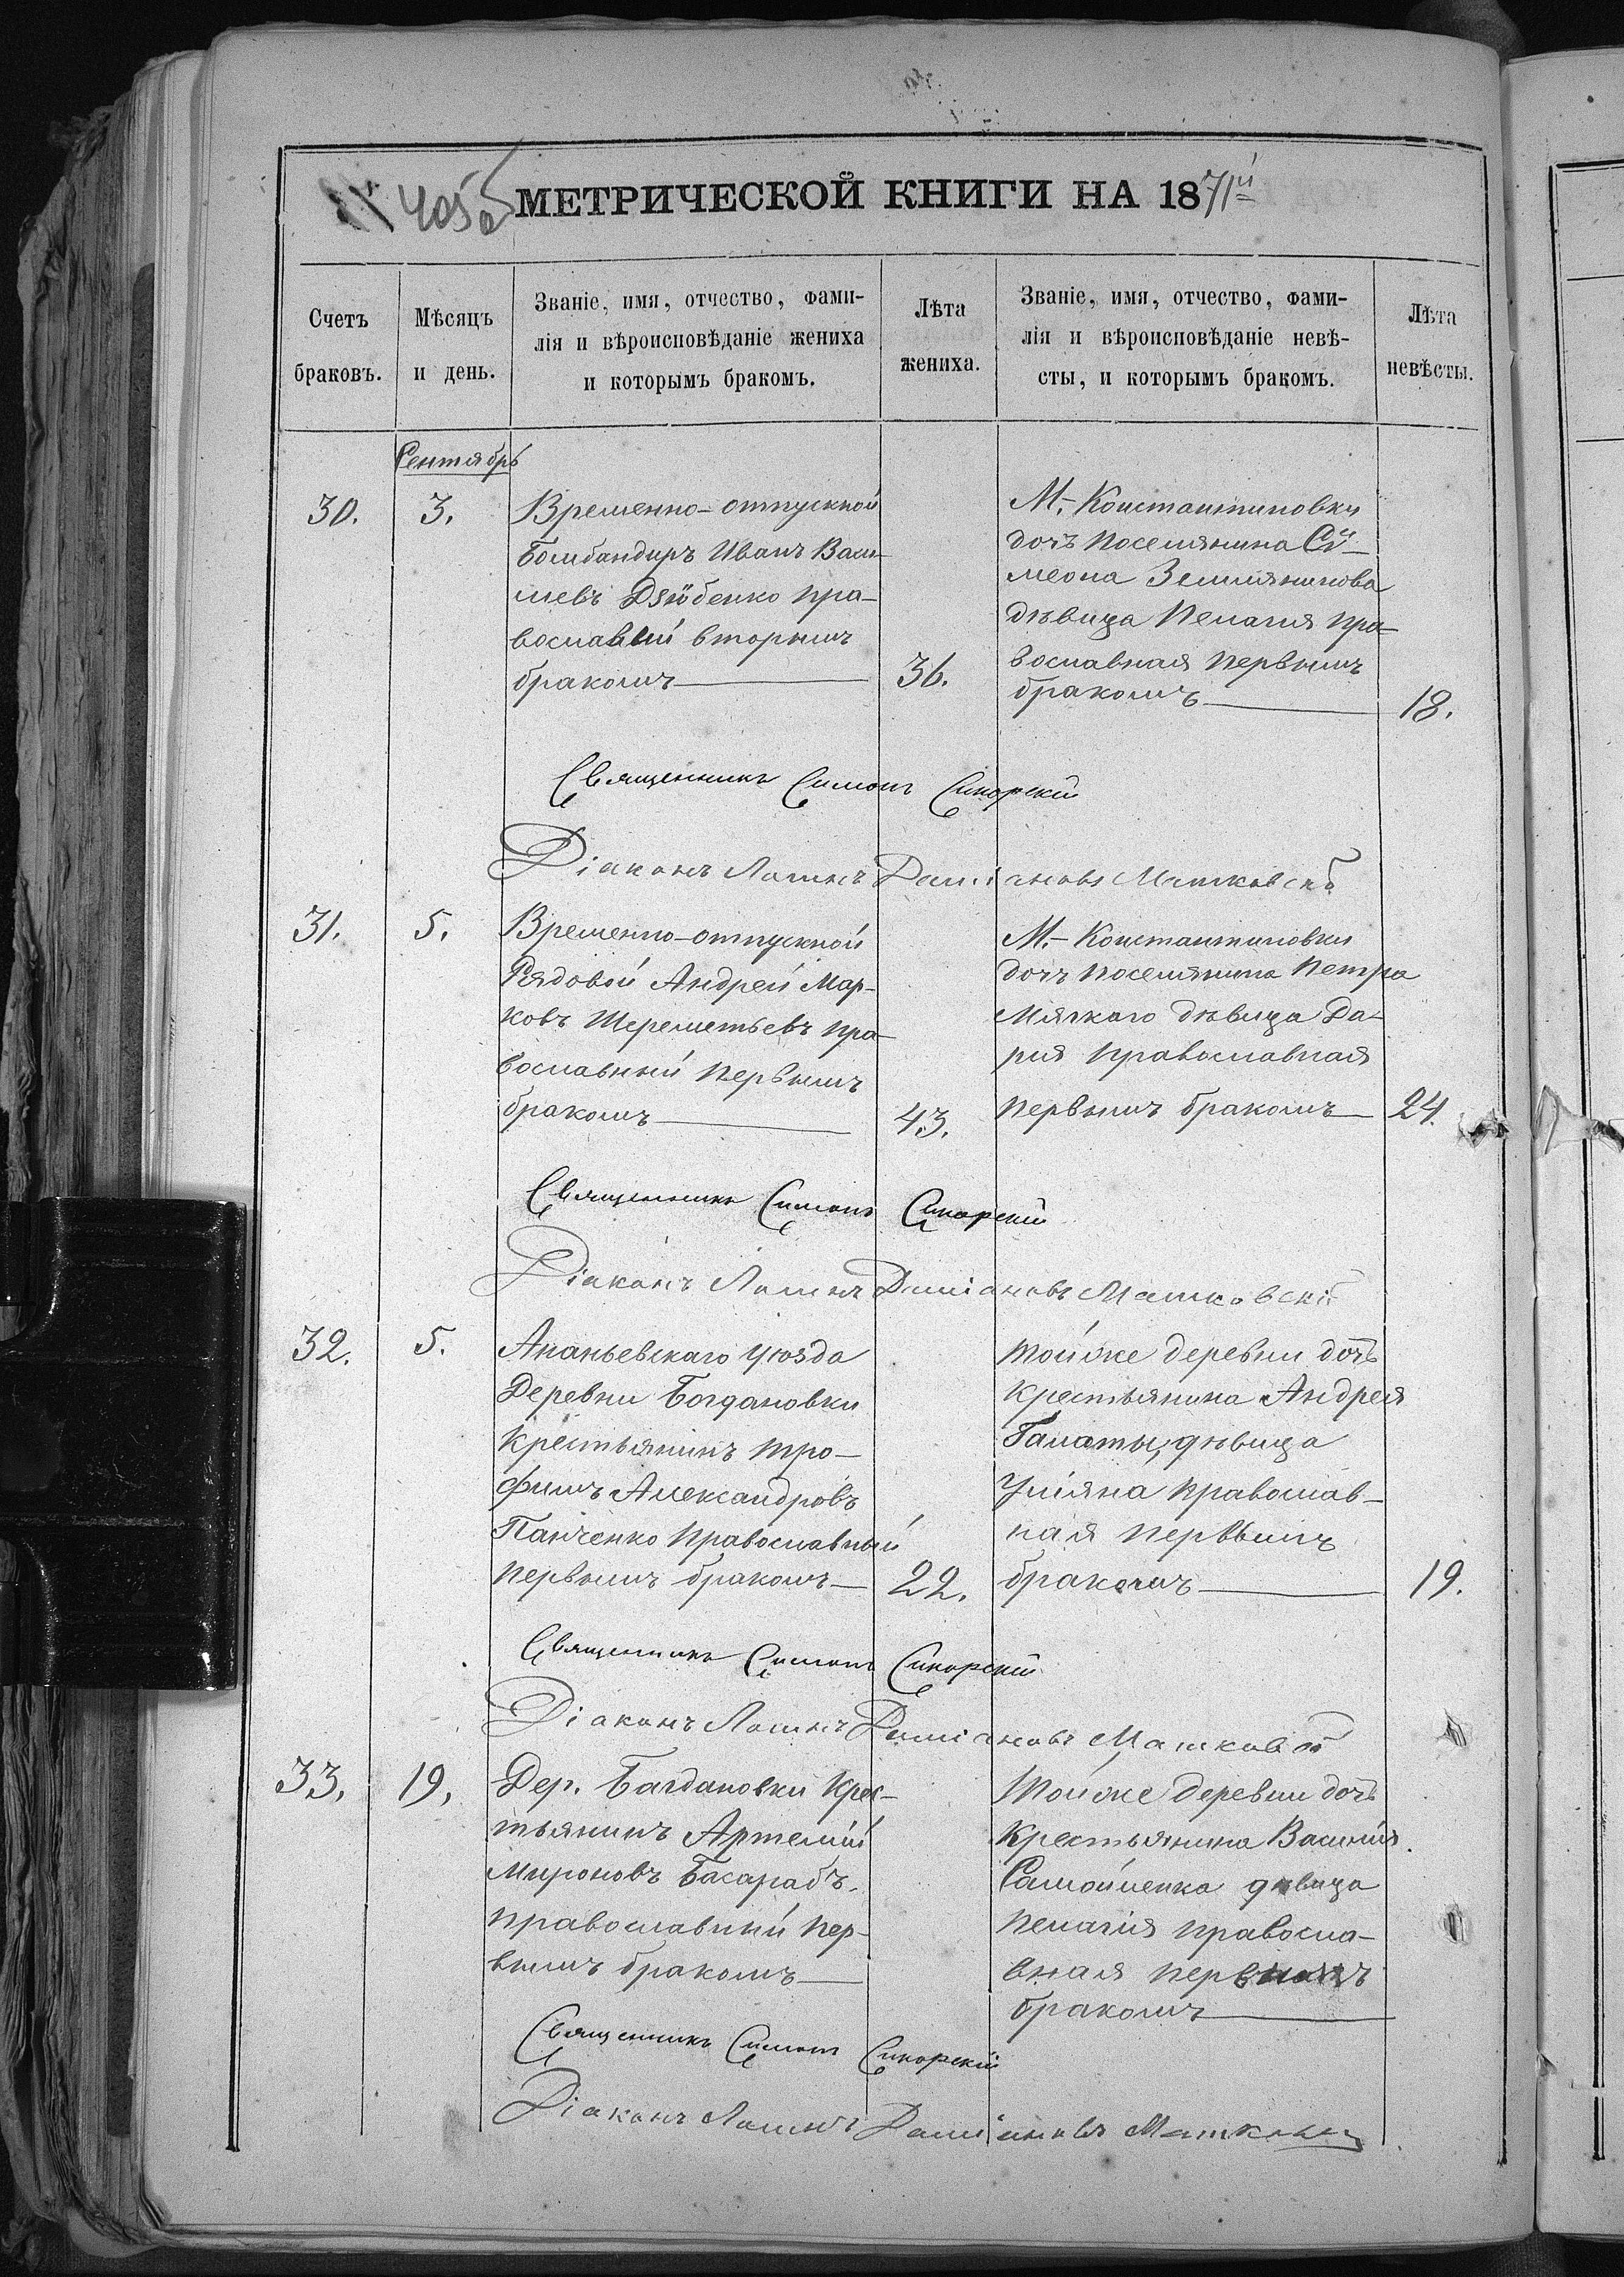 405 об
МЕТРИЧЕСКОЙ КНИГИ НА 1871й
Счетъ браковъ.
Мѣсяцъ и день.
Званіе, имя, отчество, фами-
лія и вѣроисповѣданіе жениха
и которымъ бракомъ.
Лѣта жениха.
Званіе, имя, отчество, фами-
лія и вѣроисповѣданіе невѣ-
сты, и которымъ бракомъ.
Лѣта невѣсты.
Сентябрь
30.
3.
Временно-отпускной
Бомбандиръ Иванъ Васи-
лиевъ Дзюбенко пра-
вославный вторымъ
бракомъ
36.
М.-Константиновки
дочь поселянина Си-
меона Землянинова
дѣвица Пелагия пра-
вославная первымъ
бракомъ
18.
Священникъ Симонъ Сикорскій
Діаконъ Логинъ Даміановъ Матковскій
31.
5.
Временно-отпускной
Рядовой Андрей Мар-
ковъ Шереметьевъ пра-
вославный первымъ
бракомъ
43.
М.-Константиновки
дочь поселянина Петра
Мягкаго дѣвица Да-
рия православная
первымъ бракомъ
24.
Священникъ Симонъ Сикорскій
Діаконъ Логинъ Даміановъ Матковскій
32.
5.
Ананьевскаго уѣзда
Деревни Богдановки
крестьянинъ Тро-
фимъ Александровъ
Панченко православный
первымъ бракомъ
22.
Тойже деревни дочь
крестьянина Андрея
Галаты, дѣвица
Уліяна православ-
ная первымъ
бракомъ
19.
Священникъ Симонъ Сикорскій
Діаконъ Логинъ Даміановъ Матковскій
33.
19.
Дер. Багдановки крес-
тьянинъ Артемій
Мироновъ Басарабъ
православный пер-
вымъ бракомъ
Тойже деревни дочь
крестьянина Василія
Самойленка дѣвица
Пелагія правосла-
вная первымъ
бракомъ
Священникъ Симонъ Сикорскій
Діаконъ Логинъ Даміановъ Матковскій